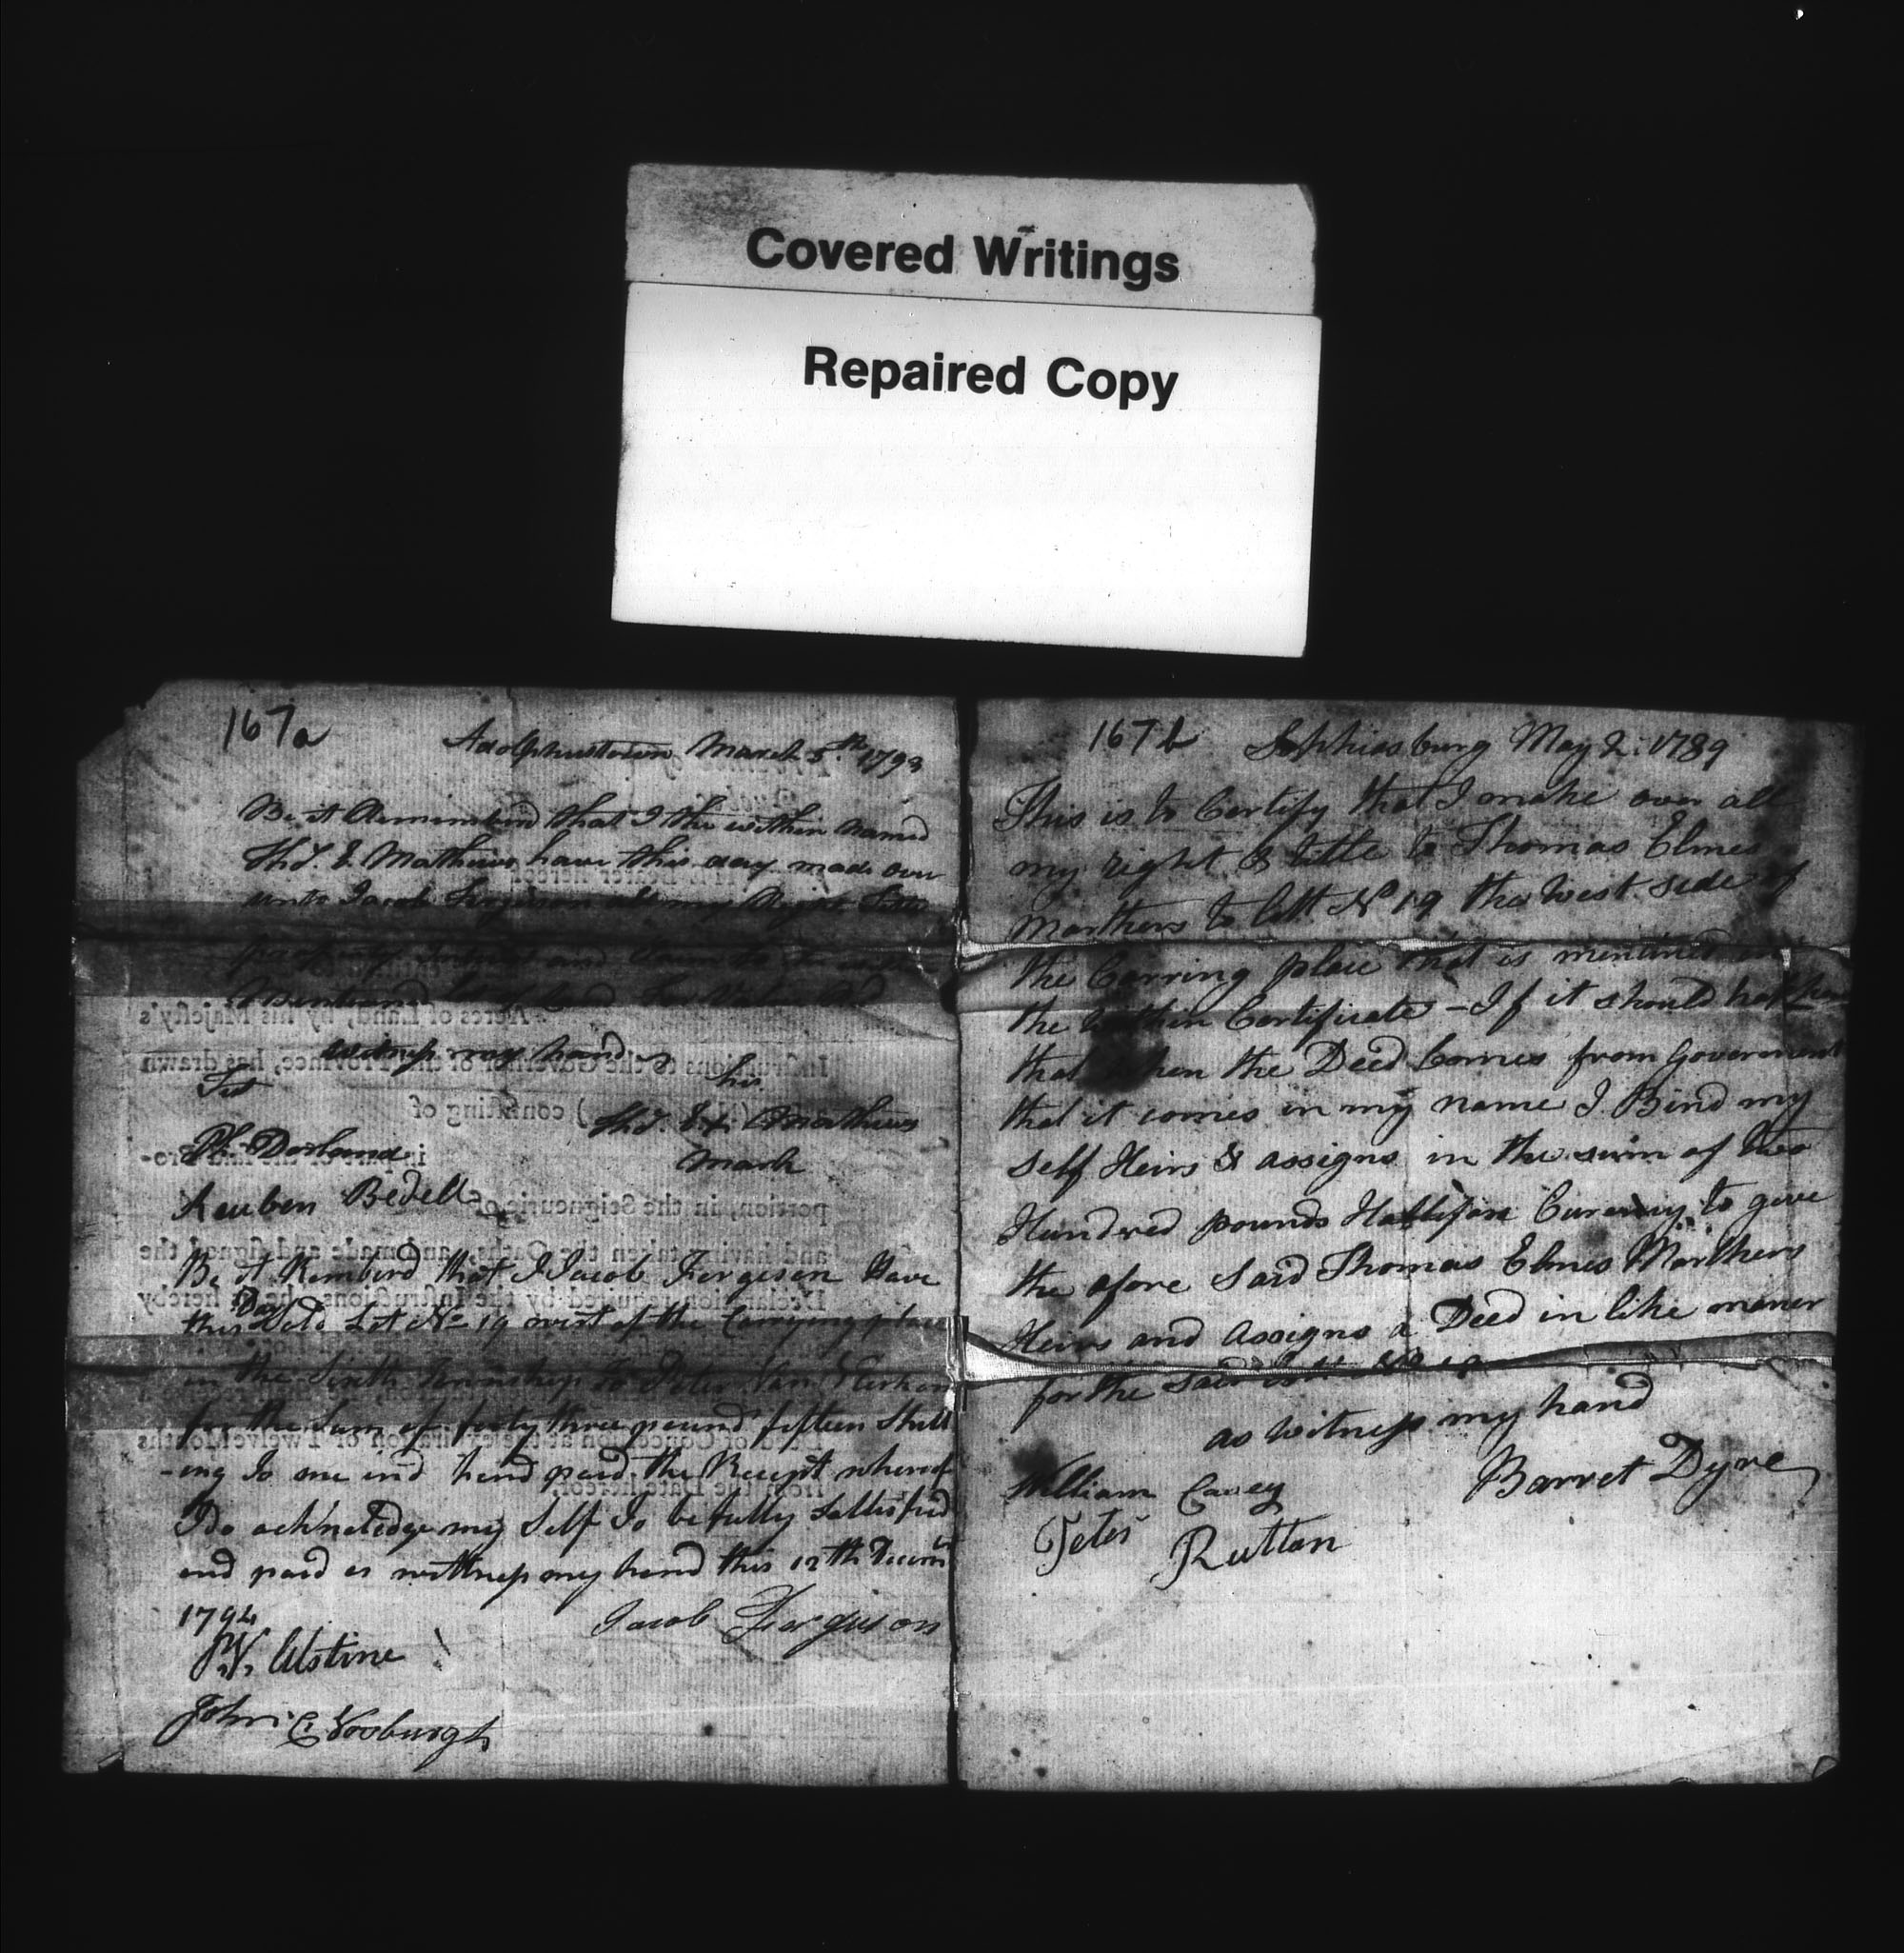 Covered Writings
Repaired Copy
167a
Adolphustown March 5th 1793
Be it Rememberd that I the within named
Th. E. Mathews have this day made over
unto Jacob Ferguson all my Right Title
and to
for Value
witness my hand
Tes
his
Th. E. X Mathews
mark
Ph. Dorland
Reuben Bedell
Be it Rembird that I Jacob Fergeson Have
this Day Sold Lot No 19 west of the Carrying place
in the Sixth Township to Peter Van
for the Sum of forty three pound fifteen Shill
-ing To me in hend paid the Receipt whereof
I do acknoledge my Self To be fully Sattisfied
end paid as wittness my hend this 12th Decem
1794
Jacob Ferguson
P. V. Alstine
John C Vosburgh
Acres of Land, by his Majesty's
Instructions to the Governor of this Province, has drawn
) consisting of
portion, in the Seigneurie of
and having taken the Oaths, and made and signed the
Declaration required by the Instructions, he is hereby
from the Date hereof.
167b
Sophiasburg May 2: 1789
This is to Certify that I make over all
my right & tittle to Thomas Elmes
Marthers to lott No 19 the West side of
the Carring place that is mentined in
the Within Certificate - If it should happen
that when the Deed Comes from Goverment
that it comes in my name I Bind my
self Heirs & assigns in the sum of two
Hundred pounds Hallifax Curency to give
the afore Said Thomas Elmes Marthers
Heirs and Assigns a Deed in like maner
for the said lott No 19
as witness my hand
Barret Dyre
William Casey
Peter Ruttan